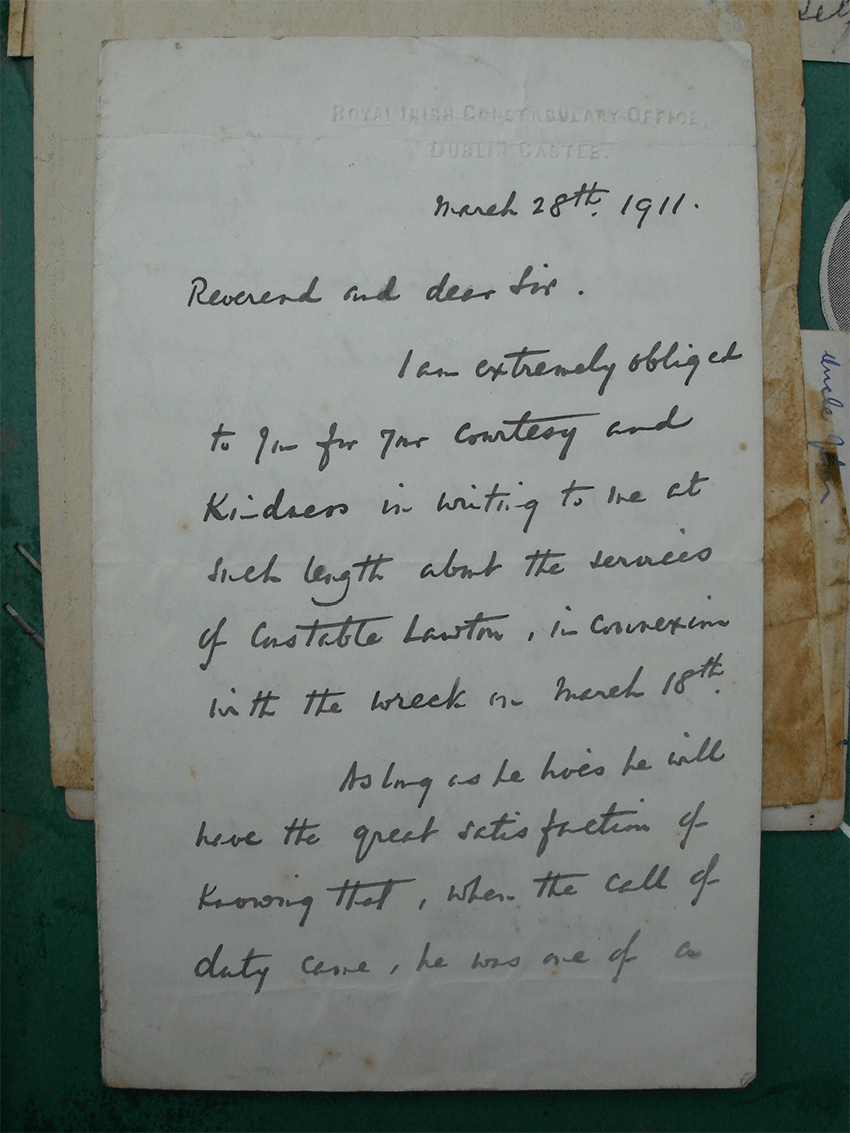 ROYAL IRISH CONSTABULARY OFFICE,
DUBLIN CASTLE.
March 28th. 1911.
Reverend and dear Sir.
I am extremely obliged
to you for your courtesy and
Kindness in writing to me at
such length about the services
of Constable Lawton, in connexion
with the wreck on March 18th.
As long as he lives he will
have the great satisfaction of
Knowing that, when the call of
duty came, he was one of a
Uncle John.